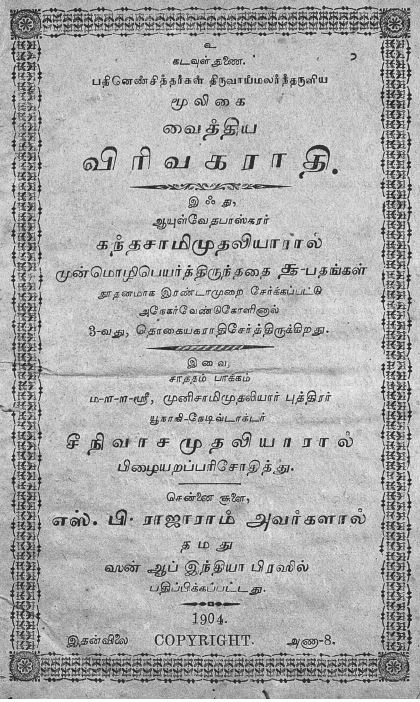 உ
கடவுள் துணை.
பதினெண்சித்தர்கள் திருவாய்மலர்ந்தருளிய
மூலிகை
வைத்திய
விரிவகராதி.
இஃது,
ஆயுள்வேதபாஸ்கரர்
கந்தசாமிமுதலியாரால்
முன்மொழிபெயர்த்திருந்ததை
நூதனமாக இரண்டாமுறை சேர்க்கப்பட்டு
அநேகர்வேண்டுகோளினால்
3-வது, தொகையகராதிசேர்த்திருக்கிறது.
இவை,
சாத்தம் பாக்கம்
ம-ற-ற-ஸ்ரீ, முனிசாமிமுதலியார் புத்திரர்
சீநிவாசமுதலியாரால்
பிழையறப்பரிசோதித்து.
சென்னை சூளை,
எஸ். பி. ராஜாராம் அவர்களால்
தமது
ஸன் ஆப் இந்தியா பிரஸில்
பதிப்பிக்கப்பட்டது.
1904.
இதன்விலை COPYRIGHT. அணா-8.